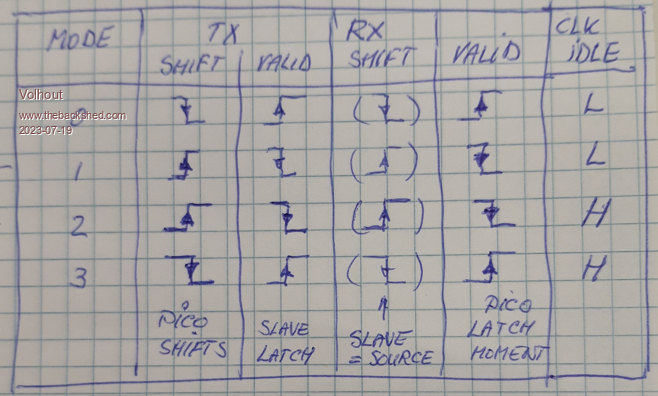 MODE TX RX CLK
SHIFT VALID SHIFT VALID IDLE
Volhout
0 L
www.thebackshed.com
2023-07-19
1 L
2 H
3 H
PICO SLAVE SLAVE PICO
SHIFTS LATCH = SOURCE LATCH
MOMENT